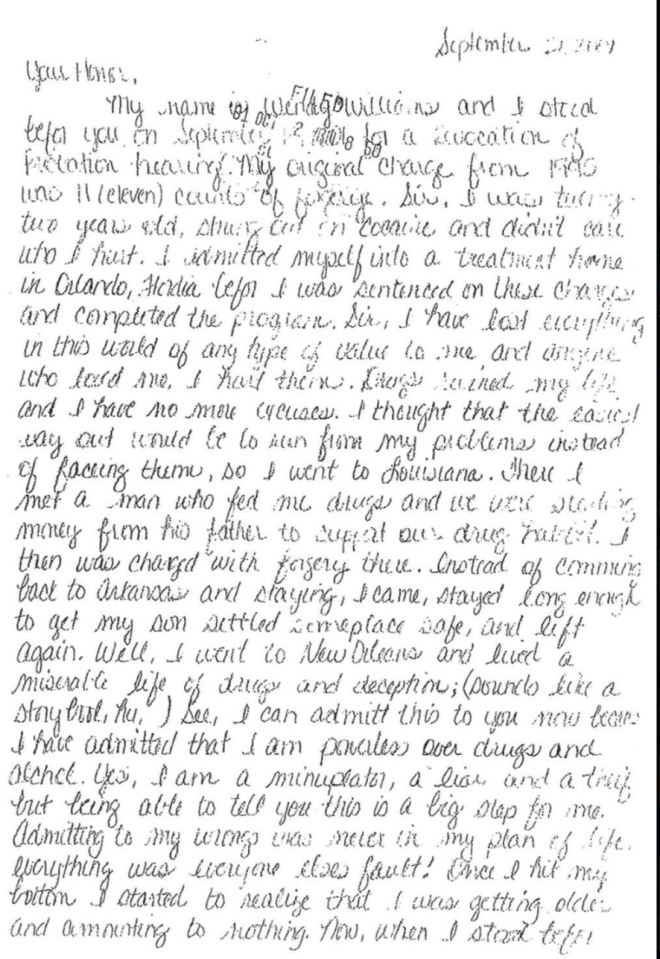 September 2001
Your Honor,
My name is Williams and I stood
befor you on September for a revocation of
Probation hearing. My original charge from 1990
was 11 (eleven) counts of forgerie. Sir, I was twenty
two years old, strung out on cocaine and didn't care
who I hurt. I admitted myself into a treatment home
in Orlando, Flordia befor I was sentenced on these charges
and completed the program. Sir, I have lost everything
in this world of any type of value to me, and anyone
who loved me, I hurt them. Drugs ruined my life
and I have no more excuses. I thought that the easiest
way out would be to run from my problems instead
of faceing them, so I went to Louisiana. There I
met a man who fed me drugs and we were stealing
money from his father to support our drug habbit. I
then was charged with forgery there. Instead of comming
back to Arkansas and staying, I came, stayed long enough
to get my son settled someplace safe, and left
again. Well, I went to New Orleans and lived a
miserable life of drugs and deception; (sounds like a
story book, hu,) See, I can admitt this to you now
I have admitted that I am powerless over drugs and
Yes, I am a a liar and a
but being able to tell you this is a big step for me.
Admitting to my wrongs was never in my plan of life.
everything was everyone elses fault! Once I hit my
bottom I started to realize that I was getting older
and amounting to nothing. Now, when I stood befor